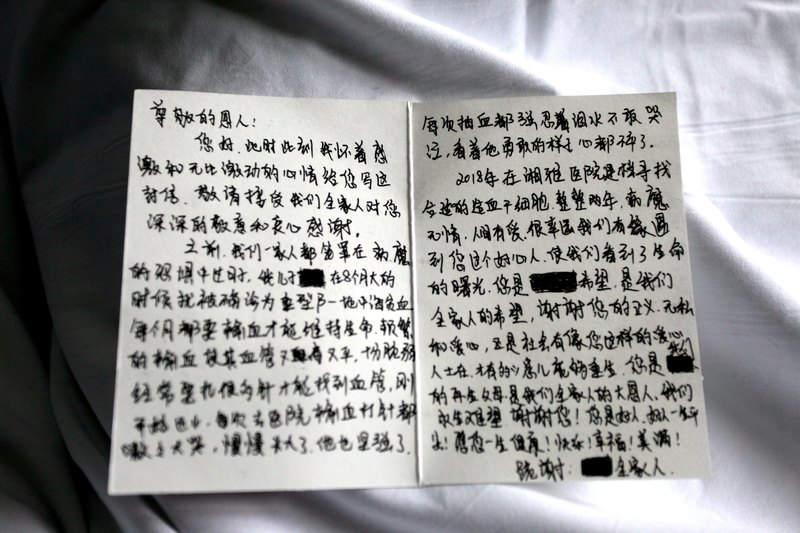 尊敬的恩人！
您好，此时此刻我怀着感
激和无比激动的心情给您写这
封信，敬请接受我们全家人对您
深深的敬意和衷心感谢。
之前，我们一家人都笼罩在病魔
的恐惧中过日子，我儿子 在8个月大的
时候就被确诊为重型β-地中海贫血
每个月都要输血才能维持生命，频繁
的输血使其血管又 又平，
经常要扎很多针才能找到血管，刚
开始 每次去医院输血打针都
嗷嗷大哭，慢慢长大了，他也坚强了
每次抽血都强忍着泪水不敢哭
泣，看着他勇敢的样子心都碎了。
2018年在湘雅医院是找寻找
合适的造血干细胞整整两年，病魔
无情，人间有爱，很幸运我们有缘遇
到您这个好心人，使我们看到了生命
的曙光，您是 希望，是我们
全家人的希望，谢谢您的正义、无私
和爱心，正是社会有像您这样的爱心
人士在，才有的患儿能够重生，您是我们
的再生父母是我们全家人的大恩人，我们
永生难望，谢谢您！您是好人，好人一生平
安！愿您一生健康！快乐！幸福！美满！
跪谢： 全家人.